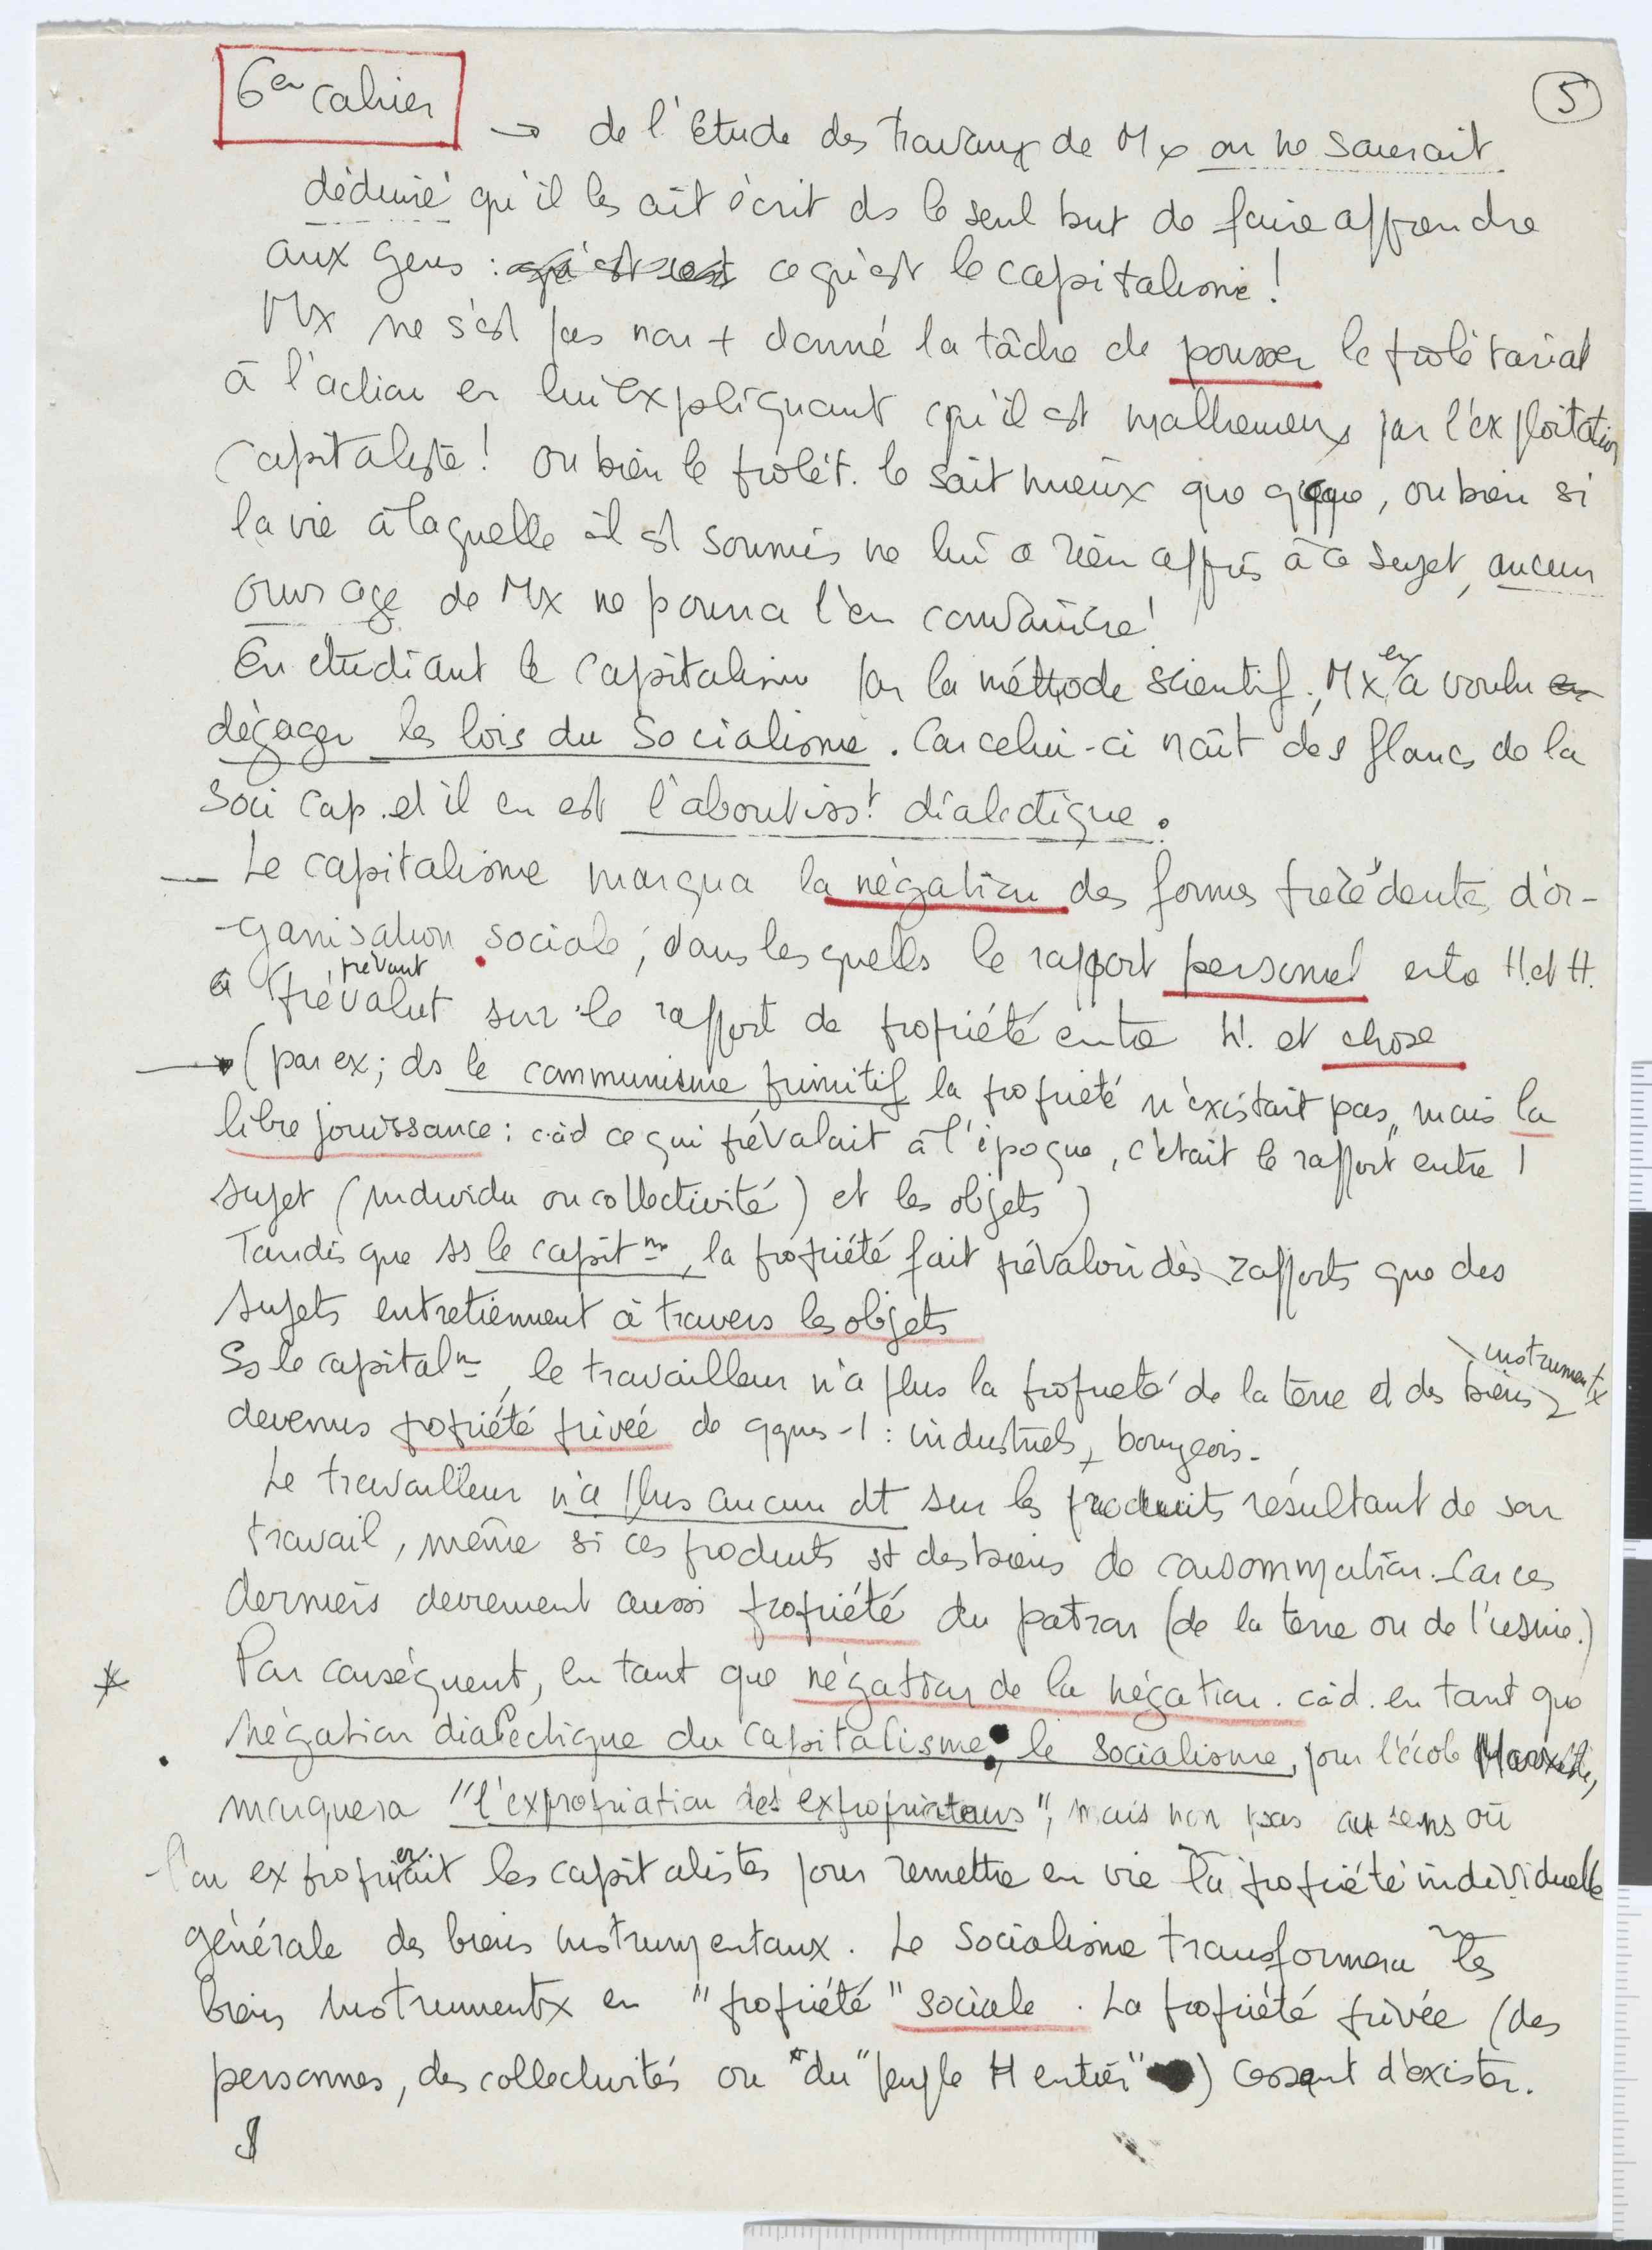 6er cahier
5
→ de l'étude des travaux de Mx on ne saurait
déduire qu'il les ait écrit ds le seul but de faire apprendre
aux gens : ce qu'est le capitalisme !
Mx ne s'est pas non + donné la tâche de pousser le prolétariat
à l'action en lui expliquant qu'il est malheureux par l'exploitation
capitaliste ! Ou bien le prolét. le sait mieux que qque, ou bien si
la vie à laquelle il est soumis ne lui a rien appris à ce sujet, aucun
ouvrage de Mx ne pourra l'en convaincre !
En étudiant le capitalisme par la méthode scientif., Mx en a voulu en
dégager les lois du Socialisme. Car celui-ci naît des flancs de la
Soci cap. et il en est l'aboutisst dialectique.
— Le capitalisme marqua la négation des formes précédentes d'or-
-ganisation sociale, dans lesquelles le rapport personnel entre H. et H.
prévaut
a prévalut sur le rapport de propriété entre h. et chose
→ (par ex; ds le communisme primitif la propriété n'existait pas, mais la
libre jouissance : càd ce qui prévalait à l'époque, c'était le rapport entre 1
sujet (individu ou collectivité) et les objets)
Tandis que ss le capitme, la propriété fait prévaloir des rapports que des
sujets entretiennent à travers les objets
instrumentx
Ss le capitalme, le travailleur n'a plus la propriété de la terre et des biens
devenus propriété privée de qques-1 : industriels, bourgeois.
Le travailleur n'a plus aucun dt sur les produits résultant de son
travail, même si ces produits st des biens de consommation. Car ces
derniers deviennent aussi propriété du patron (de la terre ou de l'usine.)
* Par conséquent, en tant que négation de la négation. càd. en tant que
négation dialectique du capitalisme, le socialisme, pour l'école Marxiste,
marquera "l'expropriation des expropriateurs", mais non pas au sens où
l'on exproprierait les capitalistes pour remettre en vie la propriété individuelle
générale des biens instrumentaux. Le Socialisme transformera les
biens instrumentx en "propriété" sociale. La propriété privée (des
personnes, des collectivités ou "du "peuple H entier") cessant d'exister.